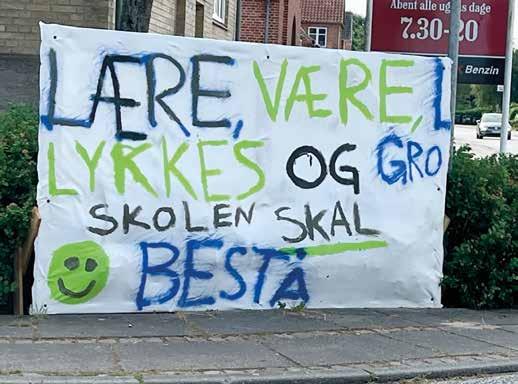 Åbent alle ugens dage
7.30-20
K Benzin
LÆRE, VÆRE, L
LYKKES OG GRO
SKOLEN SKAL
BESTÅ